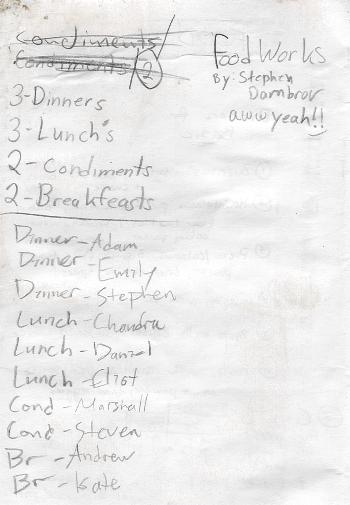 Condiments
Condiments 2
Food Works
By: Stephen
Dambrov
aww yeah!!
3-Dinners
3-Lunch's
2-Condiments
2-Breakfeasts
Dinner-Adam
Dinner-Emily
Dinner-Stephen
Lunch-Chandra
Lunch-Daniel
Lunch-Eliot
Cond-Marshall
Cond-Steven
Br-Andrew
Br-Kate